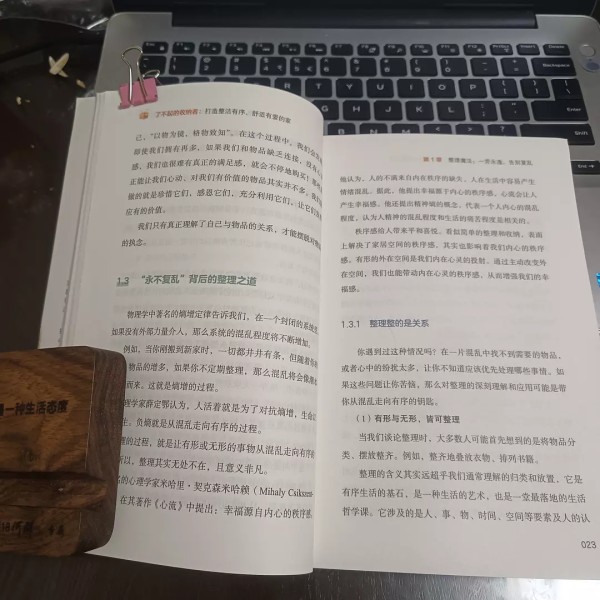 了不起的收纳者：打造整洁有序、舒适有爱的家
己，“以物为镜，格物致知”。在这个过程中，我们会
即使我们拥有再多，如果我们和物品缺乏连接，没有
感，我们也很难有真正的满足感，就会不停地购买！
正能让我们心动、对我们有价值的物品其实并不多，我们
做的就是珍惜它们，感恩它们，充分利用它们，让它们
应有的价值。
我们只有真正理解了自己与物品的关系，才能摆脱对物
的执念。
1.3 “永不复乱”背后的整理之道
物理学中著名的熵增定律告诉我们，在一个封闭的系统
如果没有外部力量介入，那么系统的混乱程度将不断增加。
例如，当你刚搬到新家时，一切都井井有条，但随着你
物品的增多，如果你不定期整理，那么混乱将会像
而来，这就是熵增的过程。
理学家薛定谔认为，人活着就是为了对抗熵增，生命
生。负熵就是从混乱走向有序的过程。
理的过程，就是让有形或无形的事物从混乱走向有序的
所以，整理其实无处不在，且意义非凡。
名的心理学家米哈里·契克森米哈赖（Mihaly Csikszent-
在其著作《心流》中提出：幸福源自内心的秩序感。
第1章 整理魔法：一次永逸，告别复乱
他认为，人的不满来自内在秩序的缺失，人在生活中容易产生
情绪混乱。据此，他提出幸福源于内心的秩序感，心流会让人
产生幸福感。他还提出精神熵的概念，代表一个人内心的混乱
程度，认为人精神的混乱程度和生活的痛苦程度是相关的。
秩序感给人带来平和喜悦。看似简单的整理和收纳，表面
上解决了家居空间的秩序感，其实也影响着我们内心的秩序
感。有形的外在空间是我们内在心灵的投射。通过主动改变外
在空间，我们也能带动内在心灵的秩序感，从而增强我们的幸
福感。
1.3.1 整理整的是关系
你遇到过这种情况吗？在一片混乱中找不到需要的物品，
或者心中的纷扰太多，让你不知道应该优先处理哪些事情。如
果这些问题让你苦恼，那么对整理的深刻理解和应用可能是带
你从混乱走向有序的钥匙。
（1）有形与无形，皆可整理
当我们谈论整理时，大多数人可能首先想到的是将物品分
类、摆放整齐。例如，整齐地叠放衣物、排列书籍。
整理的含义其实远超乎我们通常理解的归类和放置，它是
有序生活的基石，是一种生活的艺术，也是一堂最落地的生活
哲学课。它涉及的是人、事、物、时间、空间等要素及人的认
023
一种生活态度